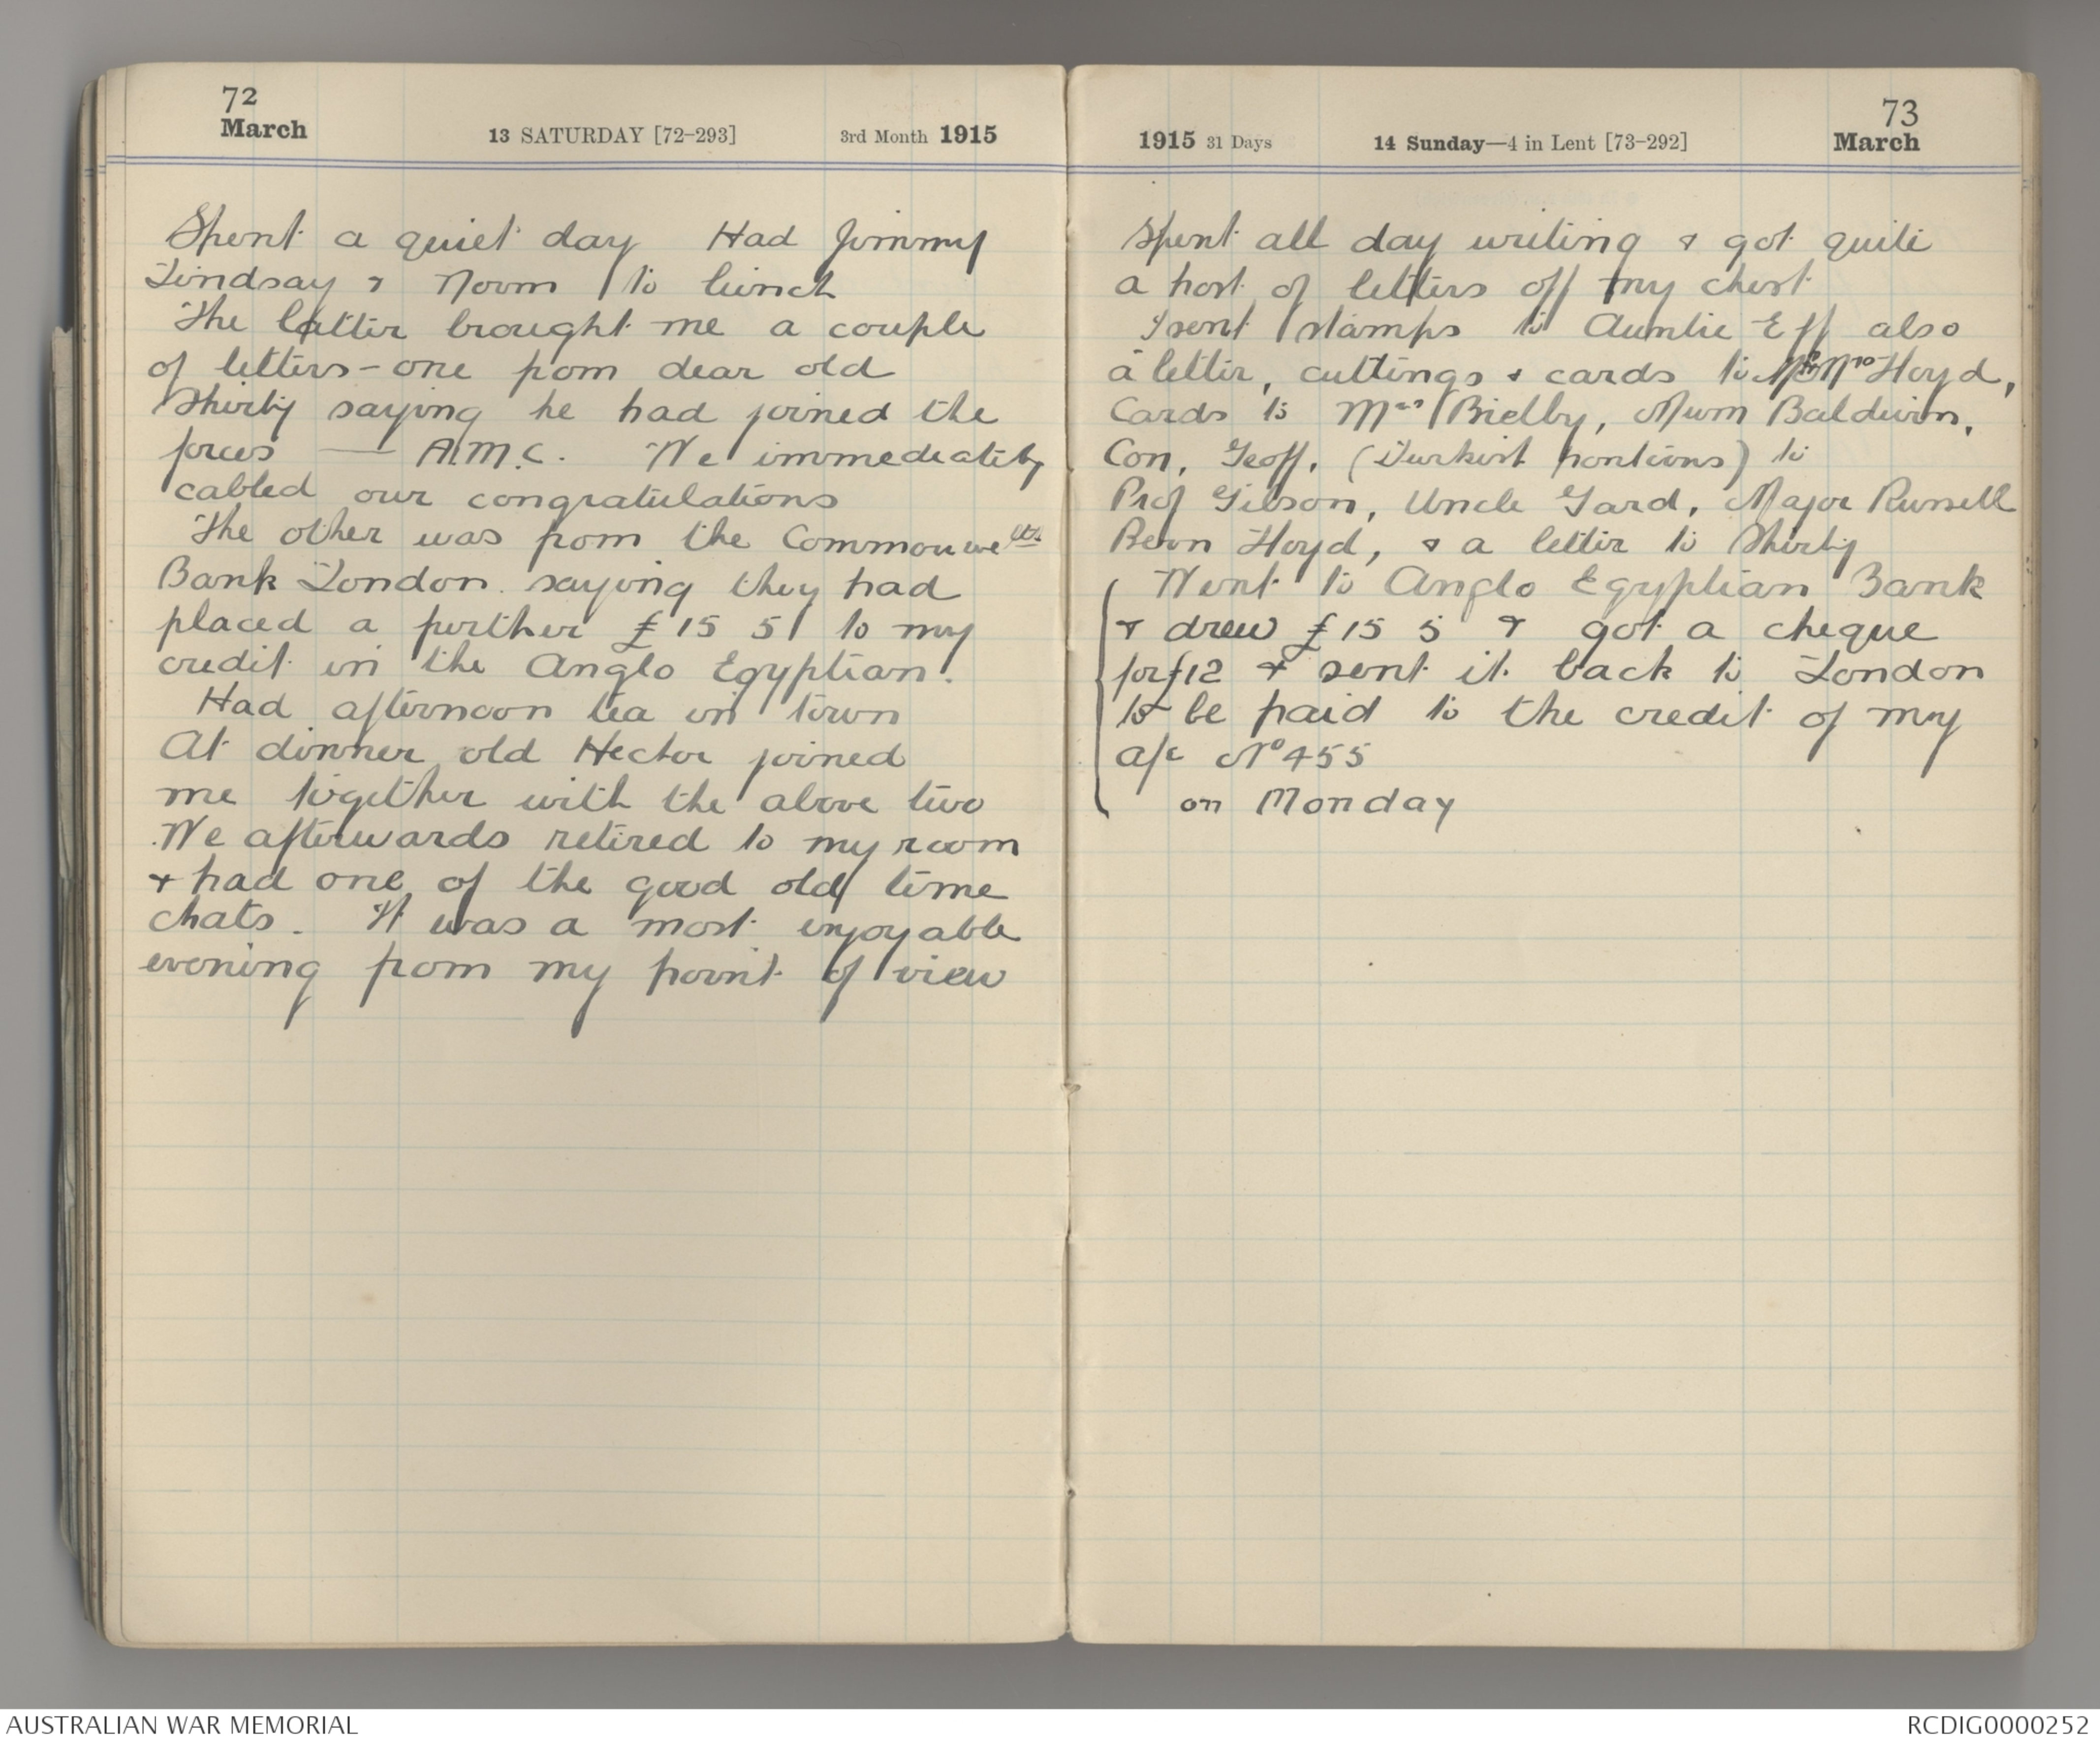 72
March
13 SATURDAY [72-293]
3rd Month 1915
Spent a quiet day Had Jimmy
Lindsay & Norm to lunch
The latter brought me a couple
of letters - one from dear old
Shirly saying he had joined the
forces — A.M.C. We immediately
cabled our congratulations
The other was from the Commonwe lth
Bank London saying they had
placed a further £15 5 to my
credit in the Anglo Egyptian.
Had afternoon tea in town
At dinner old Hector joined
me together with the above two
We afterwards retired to my room
& had one of the good old time
chats. It was a most enjoyable
evening from my point of view
73
March
1915 31 Days
14 Sunday—4 in Lent [73-292]
Spent all day writing & got quite
a host of letters off my chest
I sent stamps to Auntie Eff also
a letter, cuttings & cards to Mrs Floyd,
Cards to Mrs Bielby, Mum Baldwin,
Con, Geoff, (Turkish pontoons) to
Prof Gibson, Uncle Gard, Major Russell
Bern Floyd, & a letter to Shirly
Went to Anglo Egyptian Bank
& drew £15 5 & got a cheque
for £12 & sent it back to London
to be paid to the credit of my
a/c No 455
on Monday
AUSTRALIAN WAR MEMORIAL
RCDIG0000252